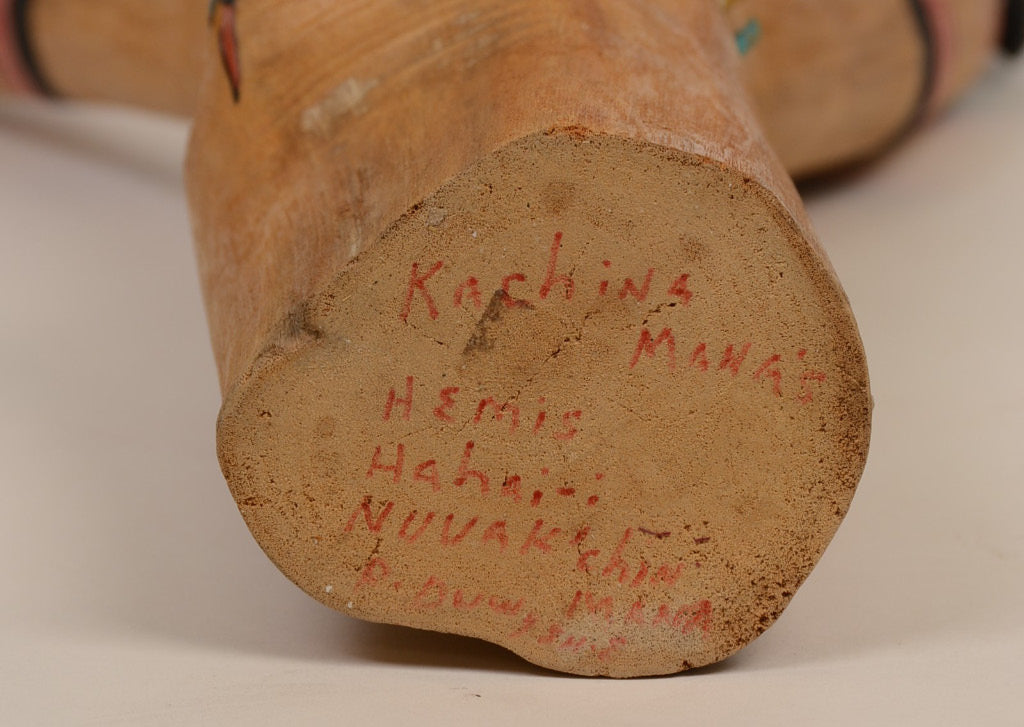 Kachina
Mana's
Hemis
Hahai-i
Nuvak'chin
Mana
P.